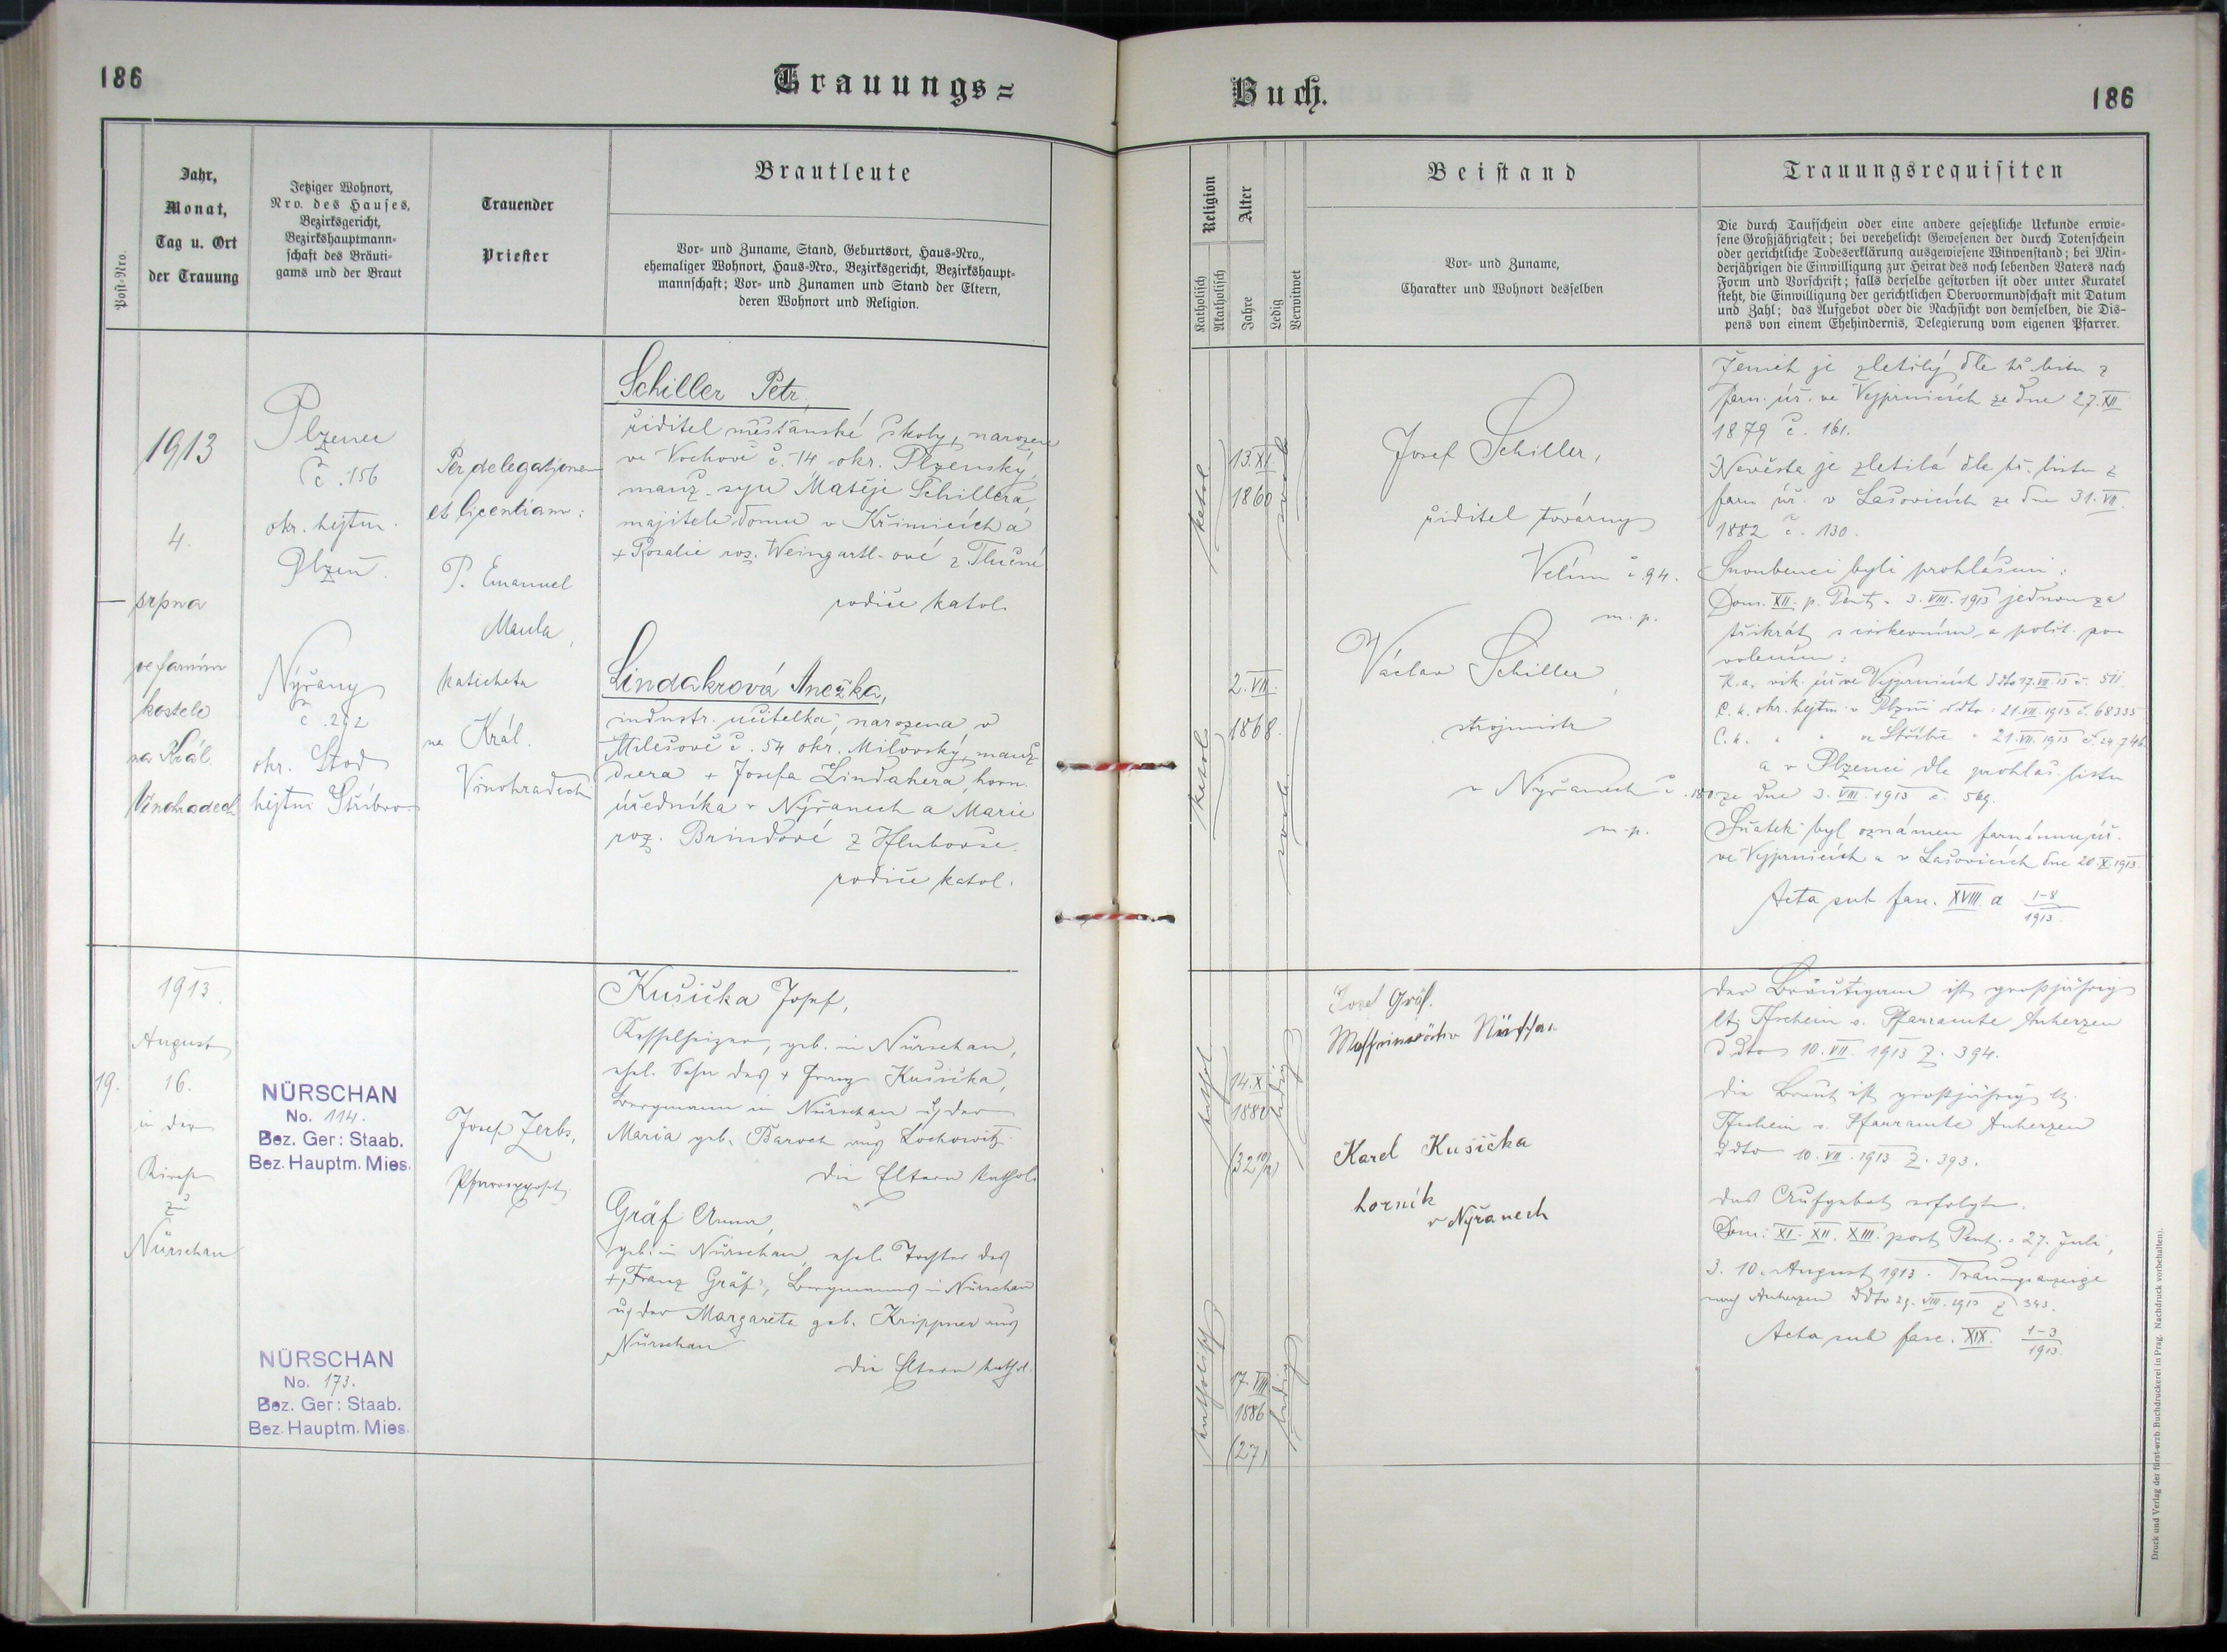 186
Trauungs=
Buch.
186
Post-Nro.
Jahr,
Monat,
Tag u. Ort
der Trauung
Jetziger Wohnort,
Nro. des Hauses,
Bezirksgericht,
Bezirkshauptmann-
schaft des Bräuti-
gams und der Braut
Trauender
Priester
Brautleute
Vor- und Zuname, Stand, Geburtsort, Haus-Nro.,
ehemaliger Wohnort, Haus-Nro., Bezirksgericht, Bezirkshaupt-
mannschaft; Vor- und Zunamen und Stand der Eltern,
deren Wohnort und Religion.
Religion
Katholisch
Akatholisch
Alter
Jahre
Ledig
Verwitwet
Beistand
Vor- und Zuname,
Charakter und Wohnort desselben
Trauungsrequisiten
Die durch Taufschein oder eine andere gesetzliche Urkunde erwie-
sene Großjährigkeit; bei verehelicht Gewesenen der durch Totenschein
oder gerichtliche Todeserklärung ausgewiesene Witwenstand; bei Min-
derjährigen die Einwilligung zur Heirat des noch lebenden Vaters nach
Form und Vorschrift; falls derselbe gestorben ist oder unter Kuratel
steht, die Einwilligung der gerichtlichen Obervormundschaft mit Datum
und Zahl; das Aufgebot oder die Nachsicht von demselben, die Dis-
pens von einem Ehehindernis, Delegierung vom eigenen Pfarrer.
1913
4.
srpna
ve farním
kostele
na Král.
Vinohradech
Plzenec
č. 156
okr. hejtm.
Plzeň.
Nýřany
č. 292
okr. Stod
hejtm. Stříbro
Per delegationem
et licentiam:
P. Emanuel
Maula,
katecheta
na Král.
Vinohradech
Schiller Petr,
řiditel měšťanské školy, narozen
ve Vochově č. 14 okr. Plzenský,
manž. syn Matěje Schillera,
majitele domu v Křimicích a
+ Rosalie roz. Weingartl-ové z Tlučné
rodiče katol.
Lindakrová Anežka,
industr. učitelka, narozena v
Milešově č. 54 okr. Milevský, manž.
dcera + Josefa Lindakera, horn.
úředníka v Nýřanech a Marie
roz. Brindové z Hluboše.
rodiče katol.
katol.
13. XI
1860
katol.
2. VII.
1868.
Josef Schiller,
řiditel továrny
Velim č. 94.
m. p.
Václav Schiller,
strojmistr
v Nýřanech č. 180
m. p.
Ženich je zletilý dle kř. listu z
farn. úř. ve Vejprnicích ze dne 27. XII
1879 č. 161.
Nevěsta je zletilá dle kř. listu z
farn. úř. v Lašovicích ze dne 31. VII.
1882 č. 130.
Snoubenci byli prohlášeni:
Dom. XII. p. Pent. = 3. VIII. 1913 jednou za
třikrát s církevním a polit. po-
volením:
K. a. vik. úř. ve Vejprnicích ddto 17. VII. 13 č. 511.
C. k. okr. hejtm. v Plzni ddto: 21. VII. 1913 č. 68335
C. k. " " ve Stříbře " 21. VII. 1913 č. 24.746.
a v Plzenci dle prohláš. listu
ze dne 3. VIII. 1913 č. 569.
Sňatek byl oznámen farnímu úř.
ve Vejprnicích a v Lašovicích dne 20. X. 1913.
Acta sub fasc. XVIII. a 1-8
1913.
19.
1913.
August
16.
in der
Kirche
zu
Nürschan
NÜRSCHAN
No. 114.
Bez. Ger: Staab.
Bez. Hauptm. Mies.
NÜRSCHAN
No. 173.
Bez. Ger: Staab.
Bez. Hauptm. Mies.
Josef Zerbs,
Pfarrexposit.
Kušička Josef,
Kesselheizer, geb. in Nürschan,
ehel. Sohn des + Franz Kušička,
Bergmann in Nürschan u. der
Maria geb. Baroch aus Lochowitz.
Die Eltern kathol.
Gräf Anna,
geb. in Nürschan, ehel. Tochter des
+ Franz Gräf, Bergmanns in Nürschan
u. der Margareta geb. Krippner aus
Nürschan
Die Eltern kathol.
kathol.
14. X.
1880
(32 10/12)
ledig
katholisch
17. VIII
1886
(27)
ledig
Josef Gräf.
Maschinwärter Nürschan
Karel Kusička
horník
v Nýřanech
Der Bräutigam ist großjährig
ltg. Tfschein v. Pfarramte Auherzen
ddto 10. VII. 1913 Z. 394.
Die Braut ist großjährig ltg.
Tfschein v. Pfarramte Auherzen
ddto 10. VII. 1913 Z. 393.
Das Aufgebot erfolgte.
Dom. XI. XII. XIII. post Pent. = 27. Juli,
3. 10. August 1913. Trauungsanzeige
nach Auherzen ddto 29. VIII. 1913 Z 343.
Acta sub fasc. XIX. 1-3
1913.
Druck und Verlag der fürst-erzb. Buchdruckerei in Prag. Nachdruck vorbehalten).